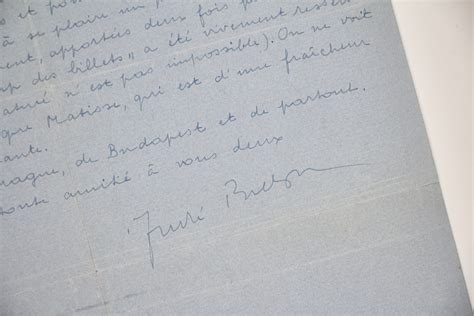 s et pos
à se plaire un p
ment, apportées deux fois pa
up des billets" a été vivement ressen
ature n'est pas impossible). On ne voit
que Matisse, qui est d'une fraîcheur
ante.
magne, de Budapest et de partout.
toute amitié à vous deux
André Breton